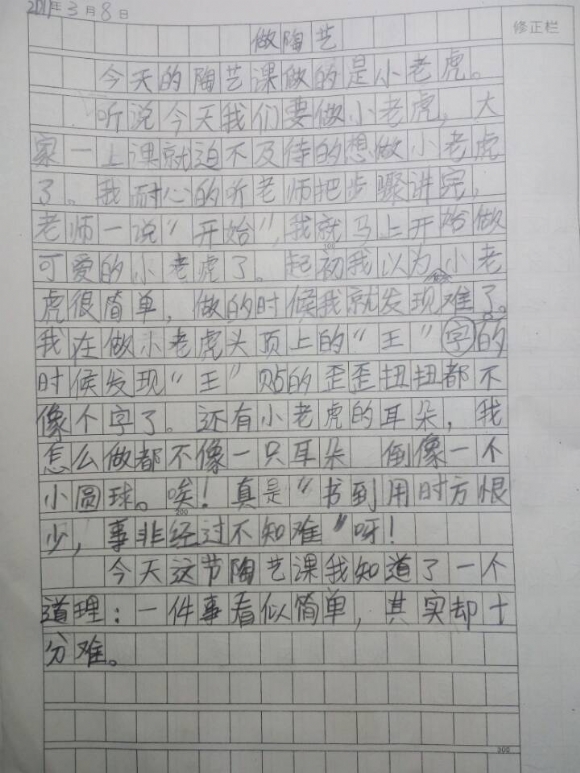 2017年3月8日
修正栏
做陶艺
今天的陶艺课做的是小老虎。
听说今天我们要做小老虎，大
家一上课就迫不及待的想做小老虎
了。我耐心的听老师把步骤讲完，
老师一说“开始”，我就马上开始做
可爱的小老虎了。起初我以为做小老
虎很简单，做的时候我就发现难了。
我在做小老虎头顶上的“王”字的
时候发现“王”贴的歪歪扭扭都不
像个字了。还有小老虎的耳朵，我
怎么做都不像一只耳朵 倒像一个
小圆球。唉！真是“书到用时方恨
少，事非经过不知难”呀！
今天这节陶艺课我知道了一个
道理：一件事看似简单，其实却十
分难。
300